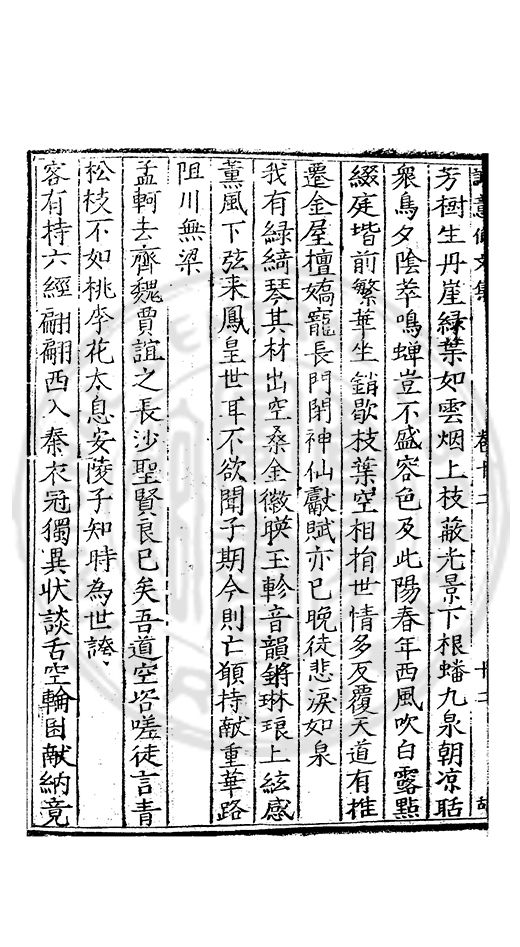 芳樹生丹崖綠葉如雲烟上枝蔽光景下根蟠九泉朝凉聒
衆鳥夕陰萃鳴蟬豈不盛容色及此陽春年西風吹白露點
綴庭堦前繁華坐銷歇枝葉空相捐世情多反覆天道有推
遷金屋擅嬌寵長門閉神仙獻賦亦已晚徒悲淚如泉
我有綠綺琴其材出空桑金徽暎玉軫音韻鏘琳琅上絃感
薰風下弦来鳳皇世耳不欲聞子期今則亡願持献重華路
阻川無梁
孟軻去齊魏賈誼之長沙聖賢良已矣吾道空咨嗟徒言青
松枝不如桃李花太息安陵子知時為世誇
客有持六經翩翩西入秦衣冠獨異狀談舌空輪囷献納竟